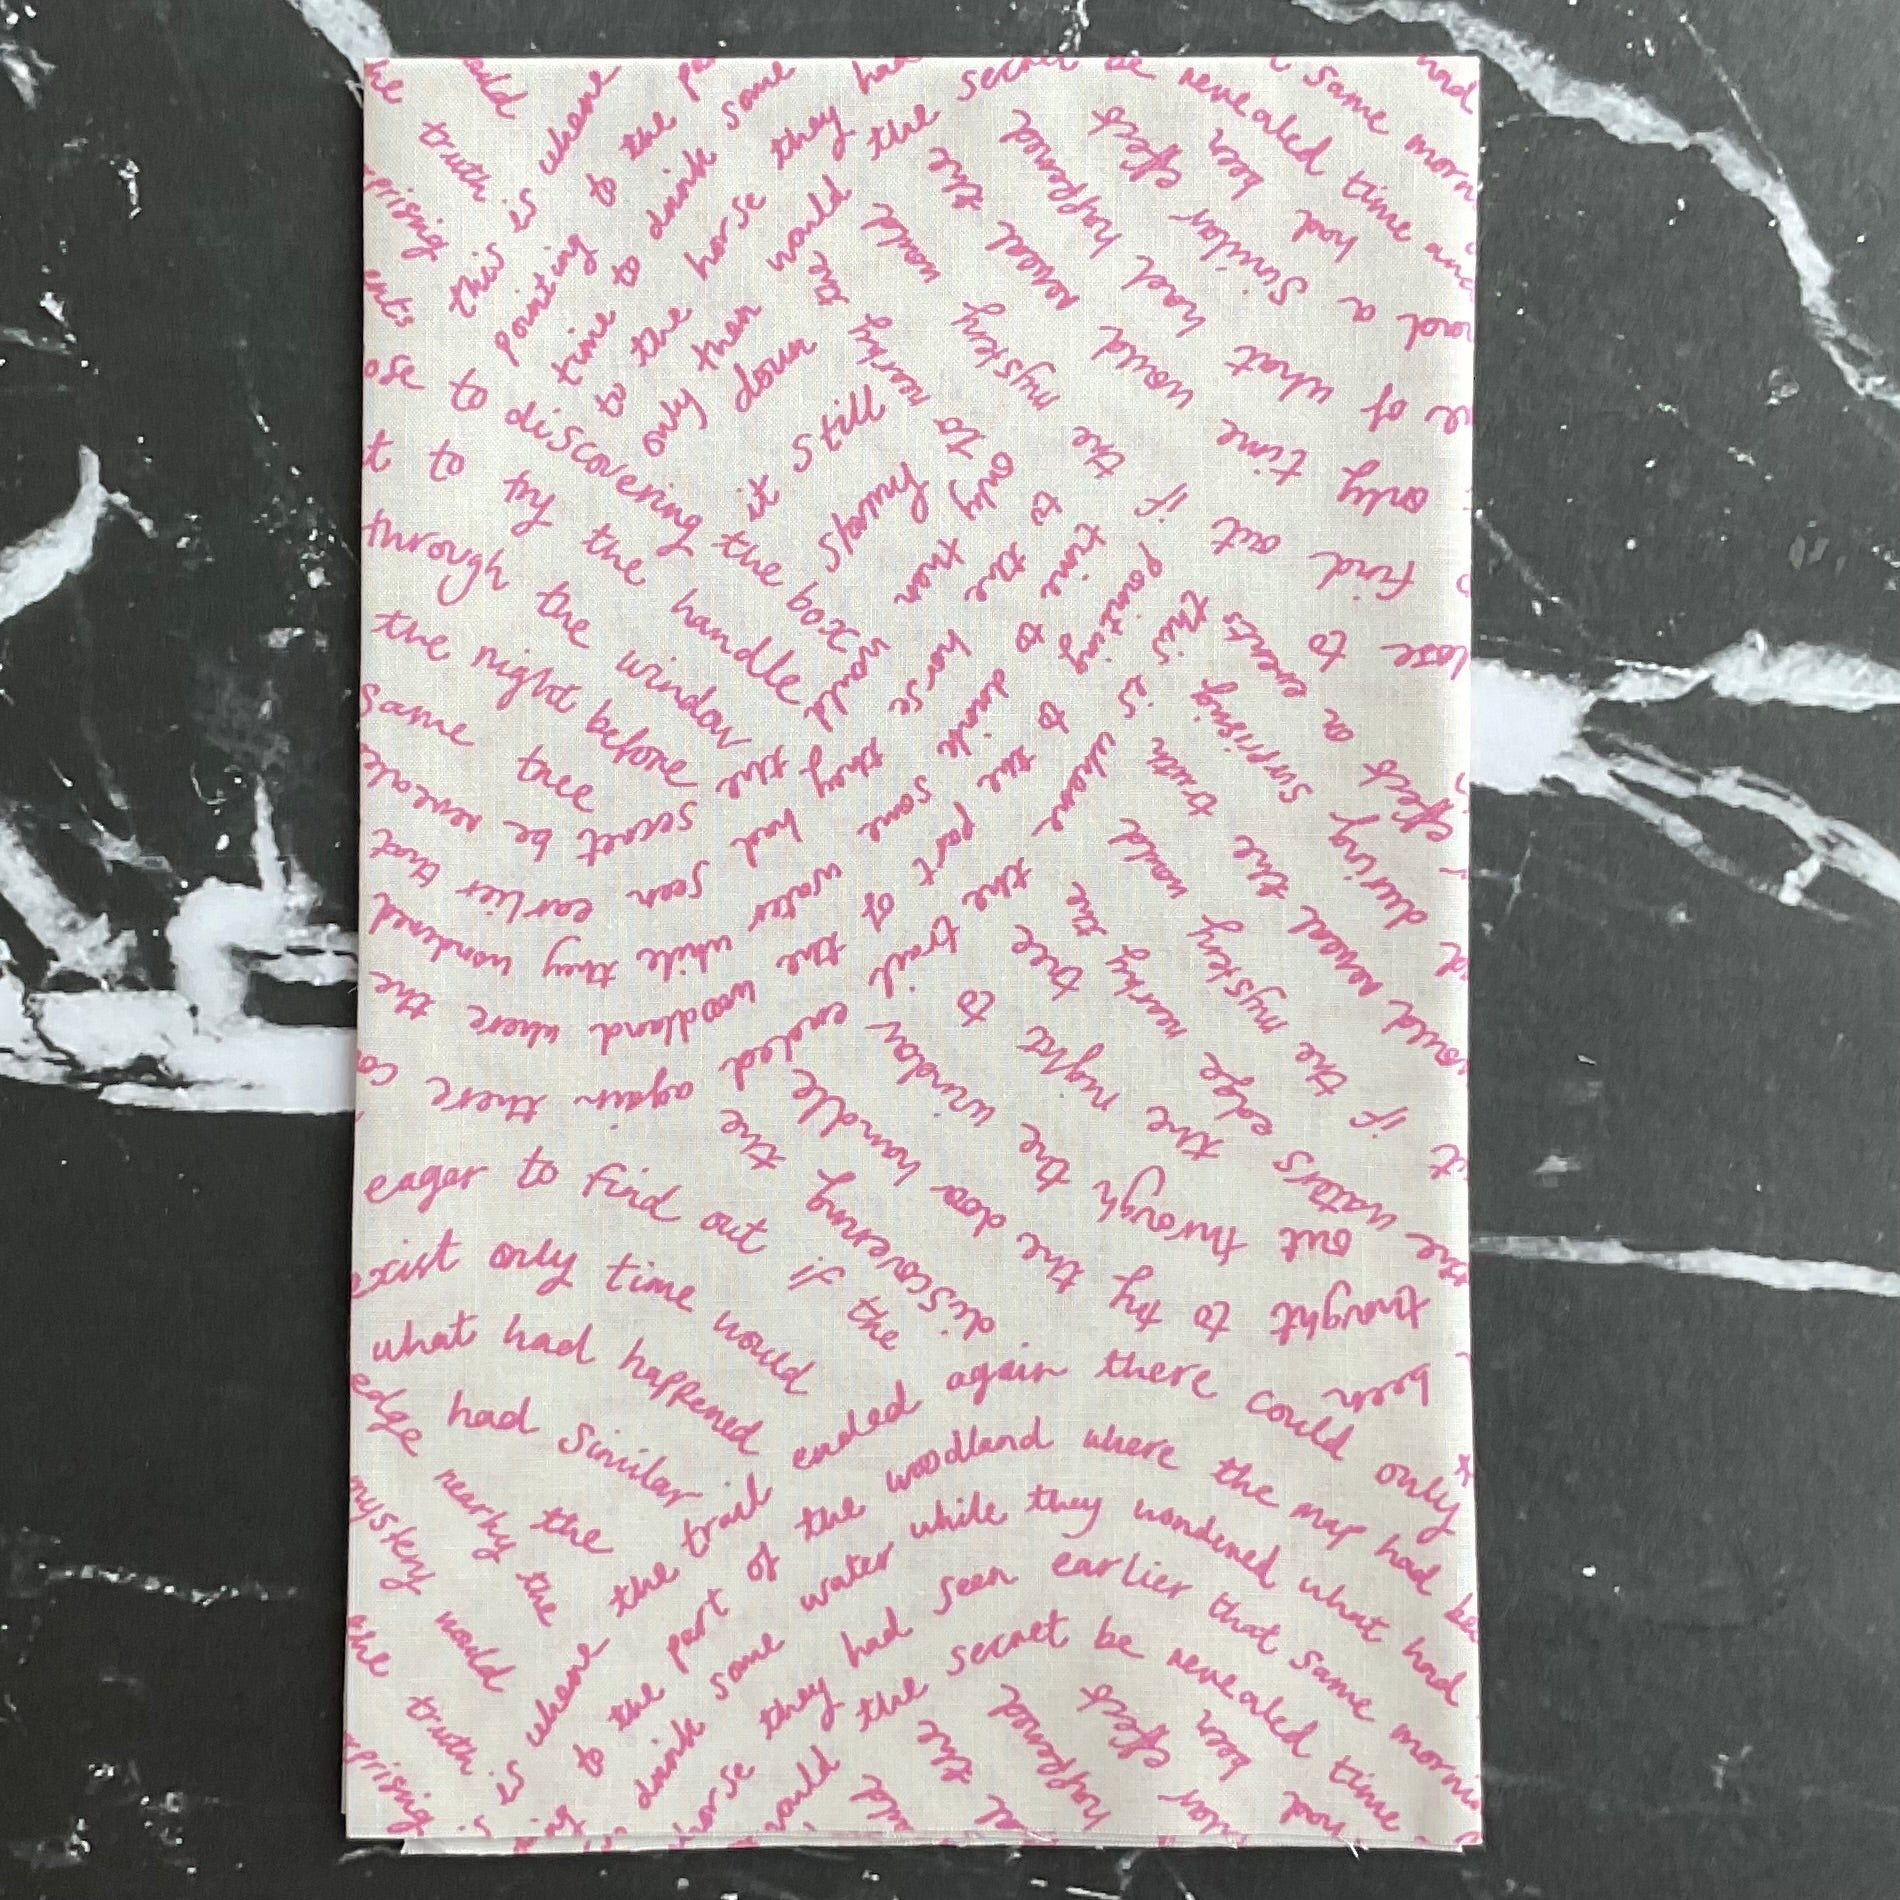 truth is where the
this is to the
pointing to drink some
time to the horse they had
to the then would the secret be revealed time
only down the
to discovering the box would the
it still
to try the handle
through the window
the night before
same tree
slowly
had similar effect
been
what had happened
only time would reveal the
find out if the mystery would
to nearby the
only then would the secret be
to the horse they had seen earlier that
time to drink some water while they wondered
pointing to the part of the woodland where the
this is where the trail ended again there
surprising truth
events
a effect
during
reveal the
if the mystery would
edge nearby the
waters
the night to tree the
out through the window
thought to try the door handle
been
discovering the
eager to find out if the
exist only time would
what had happened
had similar
edge nearby the
mystery would
the truth is where the trail ended again there could only
to the part of the woodland where the map had
drink some water while they wondered what had
horse they had seen earlier that same
would the secret be revealed time
the
happened
effect
been
had